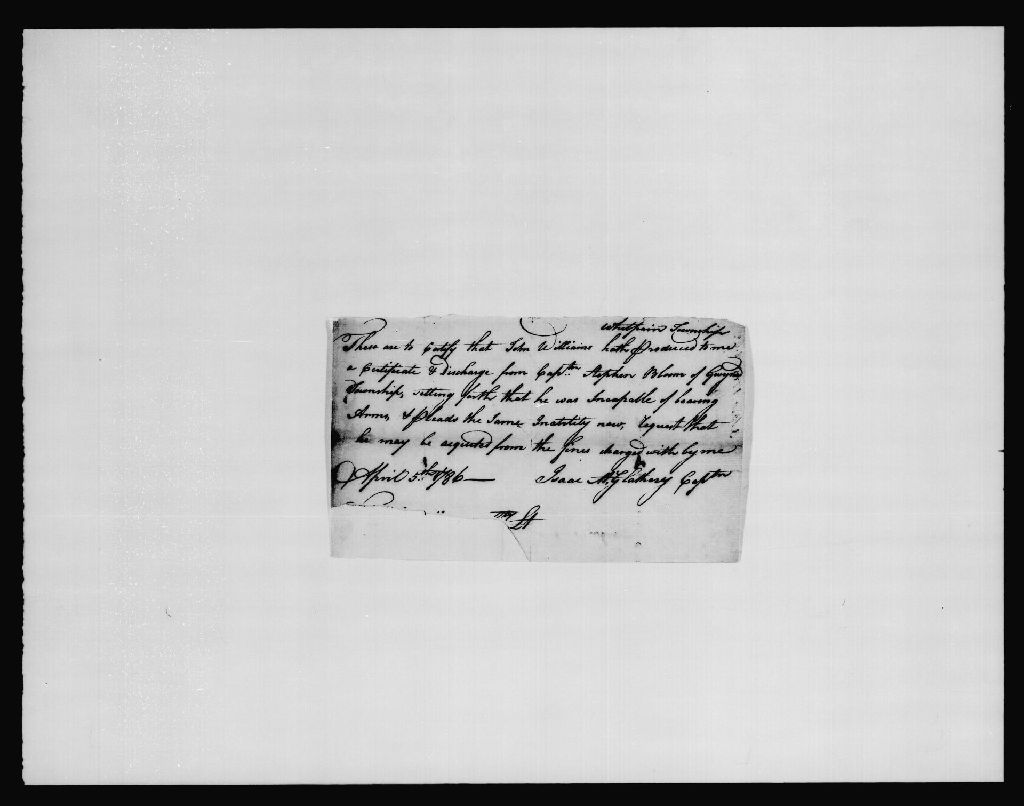 Whitpain Township
These are to Certify that John Williams hath produced to me
a Certificate & Discharge from Captn. Stephen Bloom of Gwynedd
Township, setting forth that he was Incapable of bearing
Arms, & pleads the Same now, request that
he may be acquited from the fines charged with by me
April 5th 1786 — Isaac McGlathery Captn
Lt